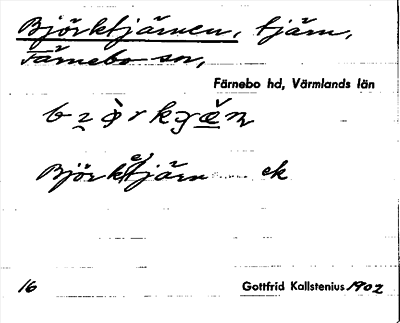 Björktjärnen, tjärn,
Färnebo sn,
Färnebo hd, Värmlands län
Björktjärn ek
16 Gottfrid Kallstenius 1902